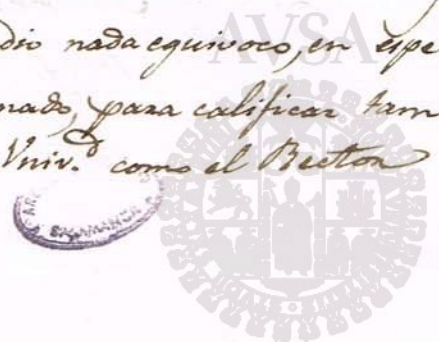 AVSA
dio nada equivoco, en espe
nado, para calificar tam
Univ.d como el Rector
SALAMANCA